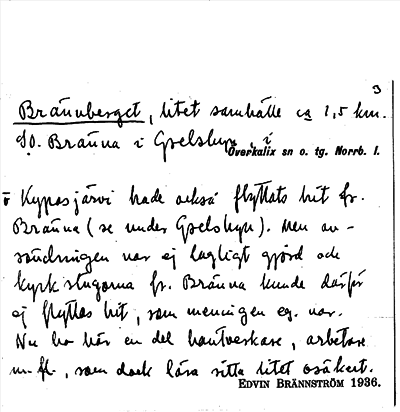 3
Brännberget, litet samhälle ca 1,5 km.
SO. Bränna i Grelsbyn, i
Överkalix sn o. tg. Norrb. l.
Kypasjärvi hade också flyttats hit fr.
Bränna (se under Grelsbyn). Men av-
söndringen var ej lagligt gjord och
kyrkstugorna fr. Bränna kunde därför
ej flyttas hit, som meningen eg. var.
Nu bo här en del hantverkare, arbetare
m. fl., som dock lära sitta litet osäkert.
EDVIN BRÄNNSTRÖM 1936.